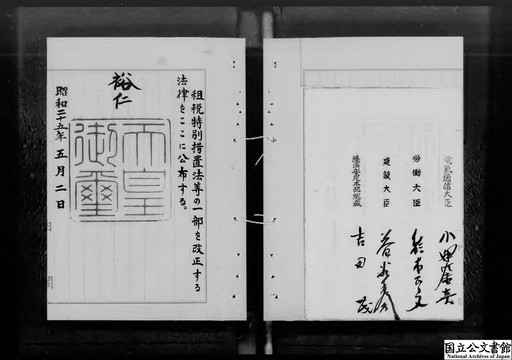 電気通信大臣 小澤佐重喜
労働大臣 鈴木正文
建設大臣 益谷秀次
経済安定本部総裁 吉田茂
租税特別措置法等の一部を改正する
法律をここに公布する。
裕仁
天皇
御璽
昭和二十五年五月二日
国立公文書館
National Archives of Japan